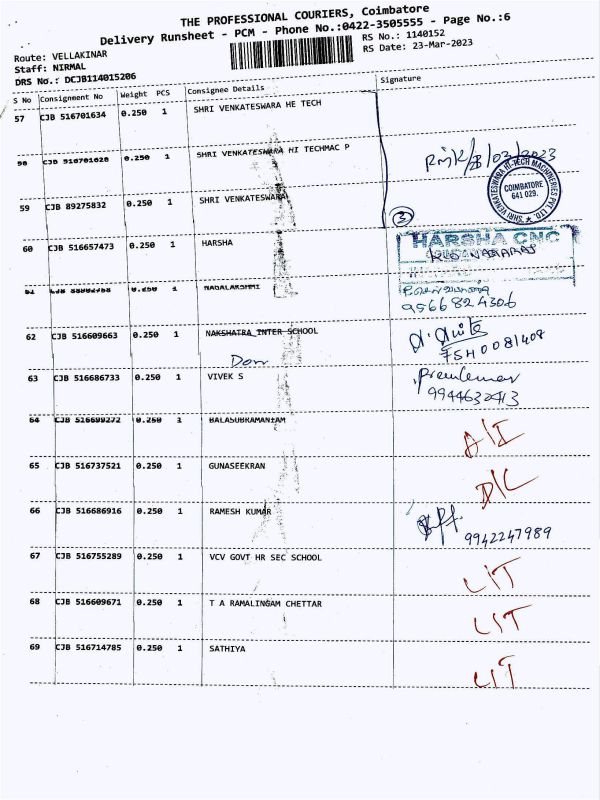 THE PROFESSIONAL COURIERS, Coimbatore
Delivery Runsheet - PCM - Phone No.:0422-3505555 - Page No.:6
Route: VELLAKINAR
RS No.: 1140152
Staff: NIRMAL
RS Date: 23-Mar-2023
DRS No.: DCJB114015206
S No Consignment No Weight PCS Consignee Details Signature
57 CJB 516701634 0.250 1 SHRI VENKATESWARA HE TECH
58 CJB 516701628 0.250 1 SHRI VENKATESWARA HI TECHMAC P
23/03/2023
SHRI VENKATESWARA HI-TECH MACHINERIES PVT. LTD.
COIMBATORE
641 029.
59 CJB 89275832 0.250 1 SHRI VENKATESWARA
3
60 CJB 516657473 0.250 1 HARSHA
HARSHA CNC
61 CJB 0.250 1 NAGALAKSHMI
9566824306
62 CJB 516609663 0.250 1 NAKSHATRA INTER SCHOOL
FSH0081408
Dom
63 CJB 516686733 0.250 1 VIVEK S
Premkumar
9944632413
64 CJB 516699272 0.250 1 BALASUBRAMANIAM
A/I
65 CJB 516737521 0.250 1 GUNASEEKRAN
D/L
66 CJB 516686916 0.250 1 RAMESH KUMAR
9942247989
67 CJB 516755289 0.250 1 VCV GOVT HR SEC SCHOOL
LIT
68 CJB 516609671 0.250 1 T A RAMALINGAM CHETTAR
LIT
69 CJB 516714785 0.250 1 SATHIYA
LIT